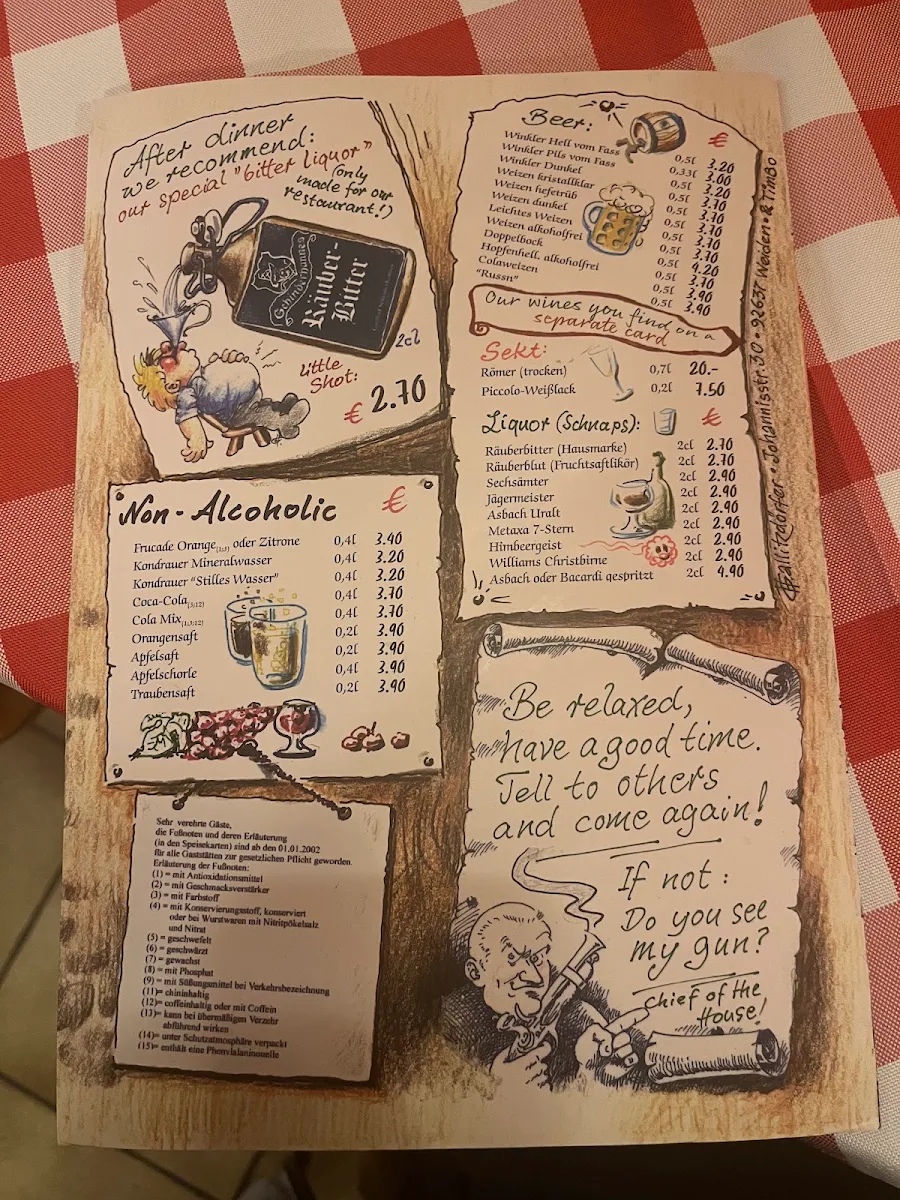 After dinner
we recommend:
our special "bitter liquor"
(only
made for our
restaurant!)
Räuber-
Bitter
2cl
Little
Shot:
€ 2.70
Non-Alcoholic €
Frucade Orange(1;3) oder Zitrone 0,4l 3.90
Kondrauer Mineralwasser 0,4l 3.20
Kondrauer "Stilles Wasser" 0,4l 3.20
Coca-Cola(3;12) 0,4l 3.70
Cola Mix(1;3;12) 0,4l 3.70
Orangensaft 0,2l 3.90
Apfelsaft 0,2l 3.90
Apfelschorle 0,4l 3.90
Traubensaft 0,2l 3.90
Sehr verehrte Gäste,
die Fußnoten und deren Erläuterung
(in den Speisekarten) sind ab den 01.01.2002
für alle Gaststätten zur gesetzlichen Pflicht geworden.
Erläuterung der Fußnoten:
(1) = mit Antioxidationsmittel
(2) = mit Geschmacksverstärker
(3) = mit Farbstoff
(4) = mit Konservierungsstoff, konserviert
oder bei Wurstwaren mit Nitritpökelsalz
und Nitrat
(5) = geschwefelt
(6) = geschwärzt
(7) = gewachst
(8) = mit Phosphat
(9) = mit Süßungsmittel bei Verkehrsbezeichnung
(11)= chininhaltig
(12)= coffeinhaltig oder mit Coffein
(13)= kann bei übermäßigen Verzehr
abführend wirken
(14)= unter Schutzatmosphäre verpackt
(15)= enthält eine Phenylalaninquelle
Beer: €
Winkler Hell vom Fass 0,5l 3.20
Winkler Pils vom Fass 0,33l 3.00
Winkler Dunkel 0,5l 3.20
Weizen kristallklar 0,5l 3.70
Weizen hefetrüb 0,5l 3.70
Weizen dunkel 0,5l 3.70
Leichtes Weizen 0,5l 3.70
Weizen alkoholfrei 0,5l 3.70
Doppelbock 0,5l 4.20
Hopfenhell, alkoholfrei 0,5l 3.70
Colaweizen 0,5l 3.90
"Russn" 0,5l 3.90
Our wines you find on a
separate card
Sekt:
Römer (trocken) 0,7l 20.-
Piccolo-Weißlack 0,2l 7.50
Liquor (Schnaps): €
Räuberbitter (Hausmarke) 2cl 2.70
Räuberblut (Fruchtsaftlikör) 2cl 2.70
Sechsämter 2cl 2.90
Jägermeister 2cl 2.90
Asbach Uralt 2cl 2.90
Metaxa 7-Stern 2cl 2.90
Himbeergeist 2cl 2.90
Williams Christbirne 2cl 2.90
Asbach oder Bacardi gespritzt 2cl 4.90
Johannisstr. 30 • 92637 Weiden •
Be relaxed,
have a good time.
Tell to others
and come again!
If not:
Do you see
my gun?
chief of the
House!